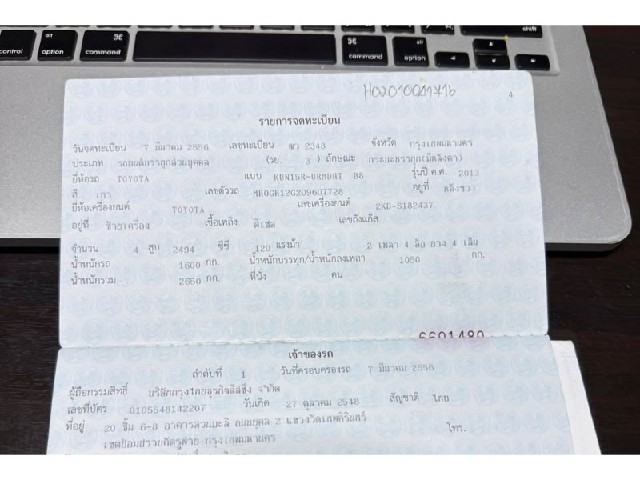 control
option
command
⌘
command
alt
option
shift
H02010041716
4
รายการจดทะเบียน
วันจดทะเบียน 7 มีนาคม 2556 เลขทะเบียน 2343 จังหวัด กรุงเทพมหานคร
ประเภท รถยนต์บรรทุกส่วนบุคคล (รย. 3 ) ลักษณะ กระบะบรรทุก
ยี่ห้อรถ TOYOTA แบบ รุ่นปี ค.ศ. 2013
สี เทา เลขตัวรถ อยู่ที่
ยี่ห้อเครื่องยนต์ TOYOTA เลขเครื่องยนต์ 2KD-S182437
อยู่ที่ เชื้อเพลิง ดีเซล เลขถังแก๊ส
จำนวน 4 สูบ 2494 ซีซี 120 แรงม้า 2 เพลา 4 ล้อ ยาง 4 เส้น
น้ำหนักรถ 1600 กก. น้ำหนักบรรทุก/น้ำหนักลงเพลา 1050 กก.
น้ำหนักรวม 2650 กก. ที่นั่ง คน
6601480
เจ้าของรถ
ลำดับที่ 1 วันที่ครอบครองรถ 7 มีนาคม 2556
ผู้ถือกรรมสิทธิ์ บริษัทกรุงไทยธุรกิจลีสซิ่ง จำกัด
เลขที่บัตร 0105548142207 วันเกิด 27 ตุลาคม 2548 สัญชาติ ไทย
ที่อยู่ 20 ชั้น 6-8 อาคารสวนมะลิ ถนนยุคล 2 แขวงวัดเทพศิรินทร์ โทร.
เขตป้อมปราบศัตรูพ่าย กรุงเทพมหานคร